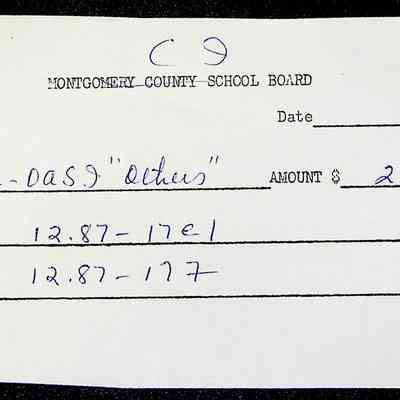 C I
MONTGOMERY COUNTY SCHOOL BOARD
Date
-OASI "Others" AMOUNT $ 2
12.87-17E1
12.87-177